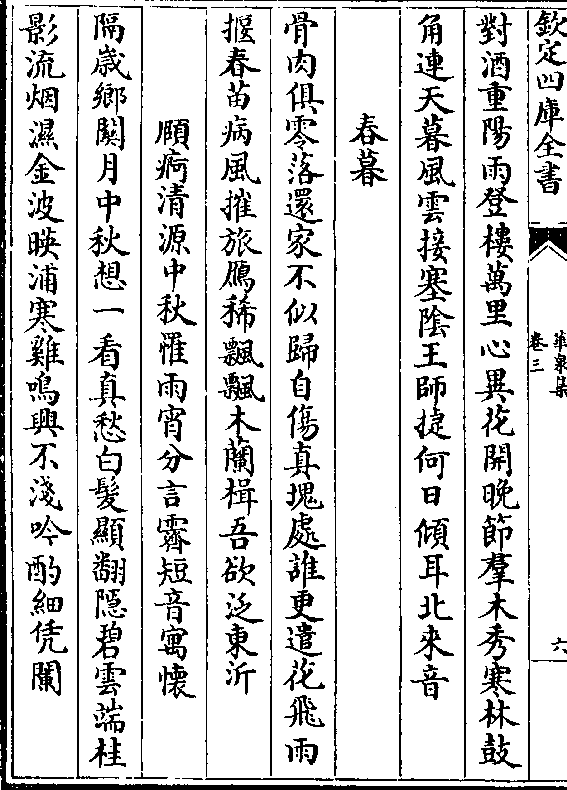 欽定四庫全書
華泉集
卷三
六
對酒重陽雨登樓萬里心異花開晚節羣木秀寒林鼓
角連天暮風雲接塞陰王師捷何日傾耳北來音
春暮
骨肉俱零落還家不似歸自傷真塊處誰更遣花飛雨
揠春苗病風摧旅鴈稀飄飄木蘭楫吾欲泛東沂
頤疴清源中秋罹雨宵分言霽短音寓懷
隔歲鄉關月中秋想一看真愁白髮顯翻隠碧雲端桂
影流烟濕金波暎浦寒雞鳴興不淺吟酌細凭闌